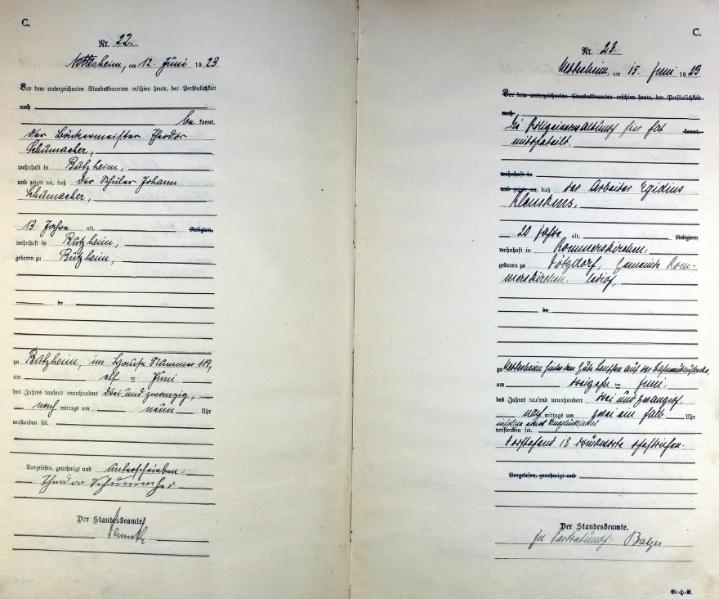 C.
Nr. 22.
Nettesheim, am 12. Juni 1923.
Vor dem unterzeichneten Standesbeamten erschien heute, der Persönlichkeit
nach
be kannt,
der Bäckermeister Theodor
Schumacher,
wohnhaft in Butzheim,
und zeigte an, daß der Schüler Johann
Schumacher,
13 Jahre alt, Religion,
wohnhaft in Butzheim,
geboren zu Butzheim,
de
zu Butzheim, im Hause Nummer 119,
am elf ten Juni
des Jahres tausend neunhundert drei und zwanzig,
nach mittags um neun Uhr
verstorben sei.
Vorgelesen, genehmigt und unterschrieben:
Theodor Schumacher
Der Standesbeamte.
C.
Nr. 23.
Nettesheim, am 15. Juni 1923
Vor dem unterzeichneten Standesbeamten erschien heute, der Persönlichkeit
nach
Die Polizeiverwaltung hier hat kannt,
mitgeteilt,
wohnhaft in
und zeigte an, daß der Arbeiter Egidius
20 Jahre alt, Religion,
wohnhaft in Rommerskirchen,
geboren zu Gemeinde Rom-
merskirchen, ledig,
de
zu Nettesheim auf der
am dreizehn ten Juni
des Jahres tausend neunhundert drei und zwanzig
nach mittags um zwei ein halb Uhr
verstorben sei.
Vorstehend 13 Druckworte gestrichen.
Vorgelesen, genehmigt und
Der Standesbeamte.
In Vertretung: